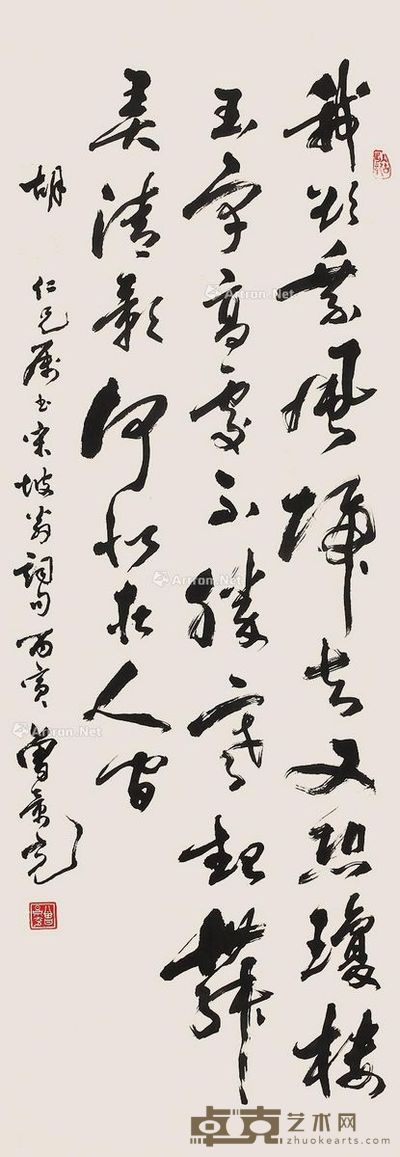 我欲乘风归去又恐琼楼
玉宇高处不胜寒起舞
弄清影何似在人间
胡 仁兄属书宋坡翁词句 丙寅 曾景充
Artron.Net
Artron.Net
Artron.Net
Artron.Net
卓克艺术网
www.zhuokearts.com